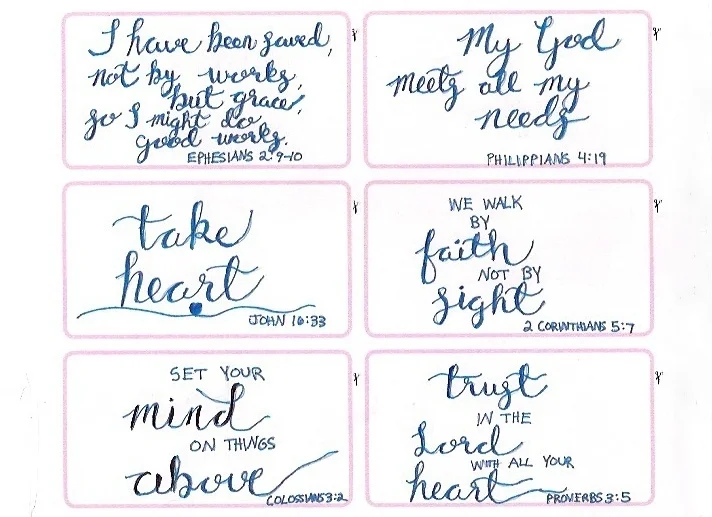 I have been saved,
not by works,
but grace,
so I might do
good works.
EPHESIANS 2:9-10
My God
meets all my
needs
PHILIPPIANS 4:19
take
heart
JOHN 16:33
WE WALK
BY
faith
NOT BY
sight
2 CORINTHIANS 5:7
SET YOUR
mind
ON THINGS
above
COLOSSIANS 3:2
trust
IN THE
Lord
WITH ALL YOUR
heart
PROVERBS 3:5